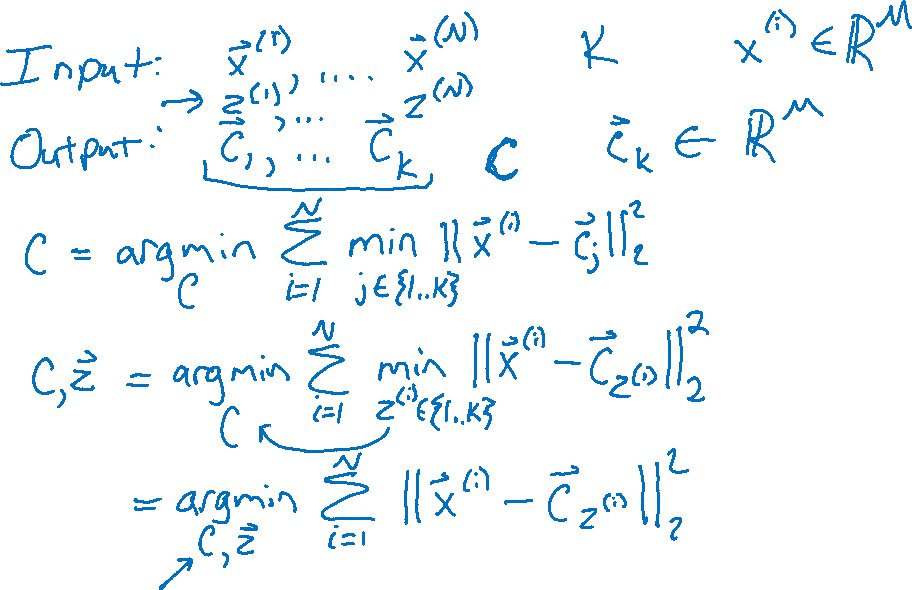 Input: x⃗^(1), .... x⃗^(N) K x^(i) ∈ ℝ^M
→ z^(1), ... z^(N)
Output: c⃗_1, ... c⃗_k C c⃗_k ∈ ℝ^M
C = argmin_C ∑_{i=1}^N min_{j∈{1..K}} ||x⃗^(i) − c⃗_j||_2^2
C, z⃗ = argmin_C ∑_{i=1}^N min_{z^(i)∈{1..K}} ||x⃗^(i) − c⃗_{z^(i)}||_2^2
= argmin_{C, z⃗} ∑_{i=1}^N ||x⃗^(i) − c⃗_{z^(i)}||_2^2